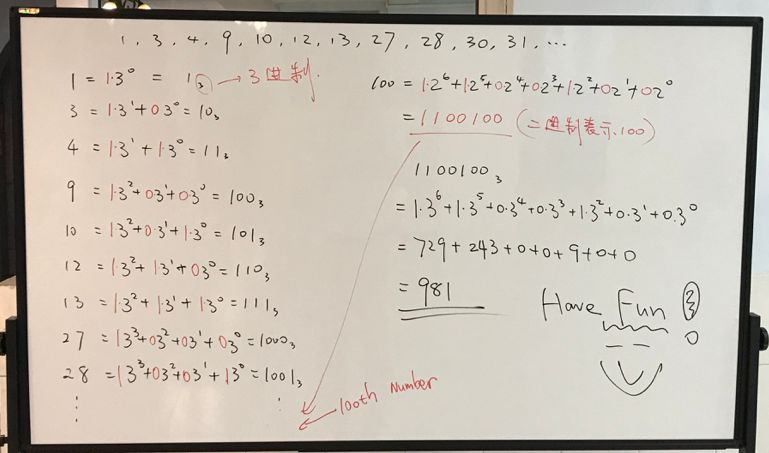 1, 3, 4, 9, 10, 12, 13, 27, 28, 30, 31, ...
1 = 1·3⁰ = 1₃ → 3进制.
3 = 1·3¹+03⁰ = 10₃
4 = 1·3¹+1·3⁰ = 11₃
9 = 1·3²+03¹+03⁰ = 100₃
10 = 1·3²+0·3¹+1·3⁰ = 101₃
12 = 1·3²+13¹+03⁰ = 110₃
13 = 1·3²+1·3¹+13⁰ = 111₃
27 = 13³+03²+03¹+03⁰ = 1000₃
28 = 13³+03²+03¹+13⁰ = 1001₃
⋮
⋮
100th number
100 = 1·2⁶+1·2⁵+02⁴+02³+1·2²+02¹+02⁰
= 1100100 (二进制表示100)
1100100₃
= 1·3⁶+1·3⁵+0·3⁴+0·3³+1·3²+0·3¹+0·3⁰
= 729+243+0+0+9+0+0
= 981
Have Fun